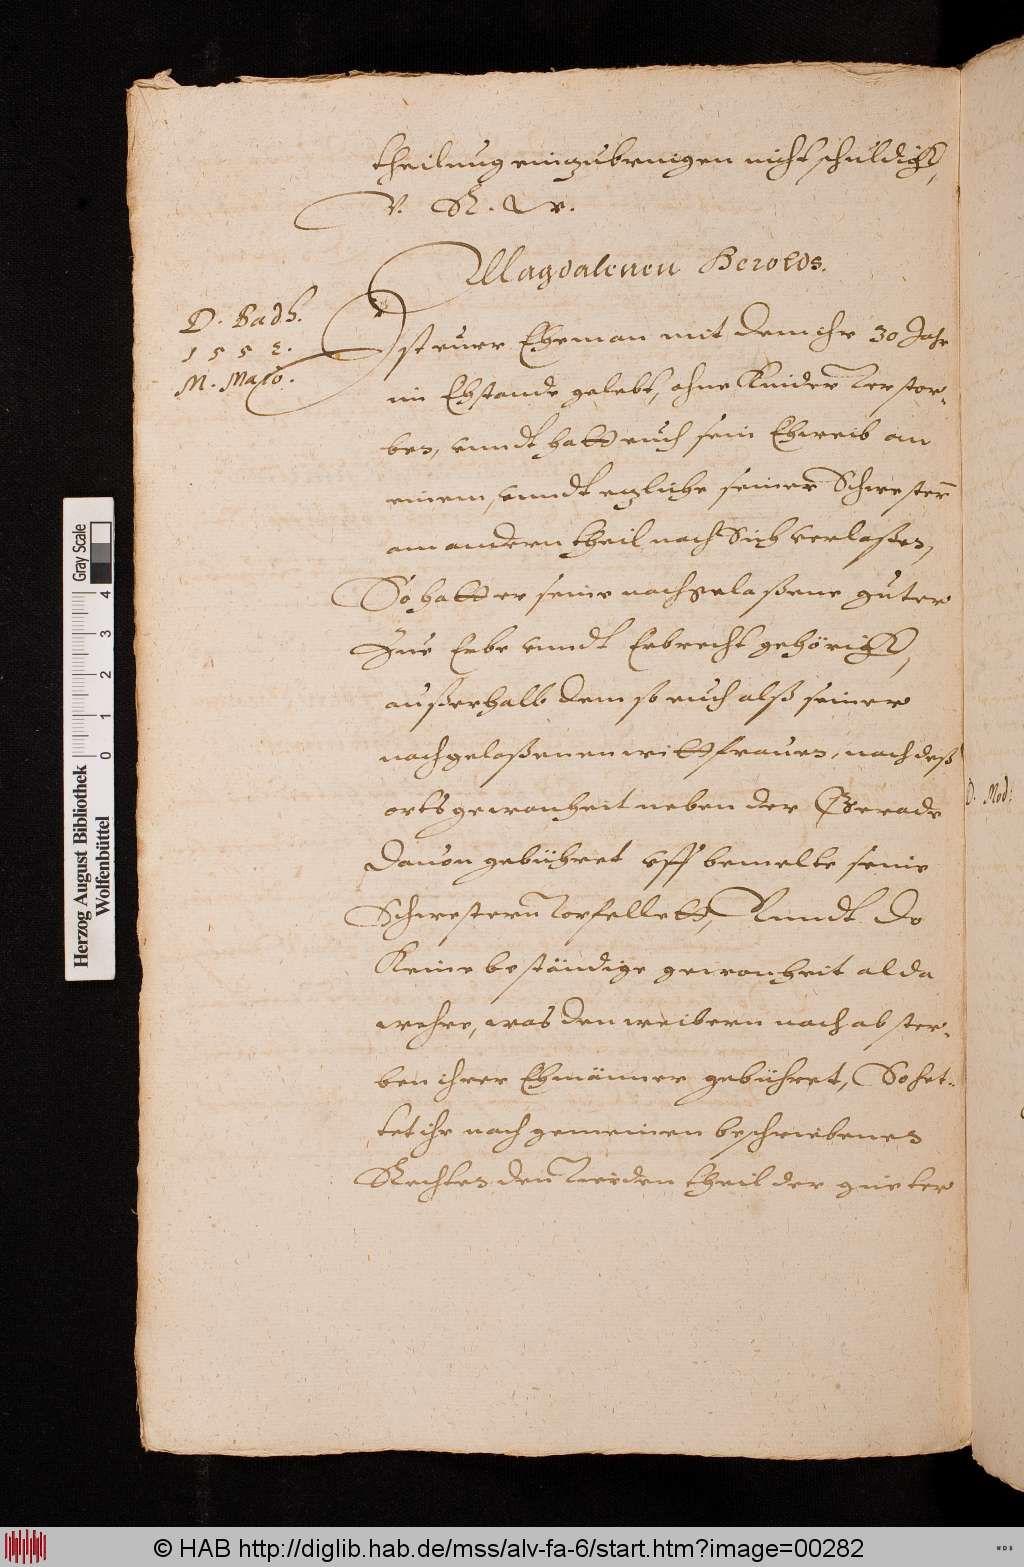 theilung einzubringen nicht schuldigk,
V. R. W.
Magdalenen Berolds.
D. Badh.
1552.
M. Majo.
Ist euer Eheman mit dem ihr 30 Jahr
im Ehstande gelebt, ohne Kinder verstor-
ben, unndt hatt euch sein Eheweib an
einem, unndt ezliche seiner Schwestern
am andern theil nach Sich verlaßen,
So hatt er seine nachgelaßene guter
Zue Erbe unndt Erbrecht gehörigk,
außerhalb dem so euch alß seiner
nachgelaßenen wittfrauen, nach deß
orts gewonheit neben der Gerade
dauon gebühret uff bemelte seine
Schwestern verfellett, Unndt do
Keine bestendige gewonheit alda
wehre, was den weibern nach abster-
ben ihrer Ehmänner gebühret, So het-
tet ihr nach gemeinen beschriebenen
Rechten den vierden theil der gueter
D. Mod:
Herzog August Bibliothek
Wolfenbüttel
Gray Scale
0 1 2 3 4
© HAB http://diglib.hab.de/mss/alv-fa-6/start.htm?image=00282